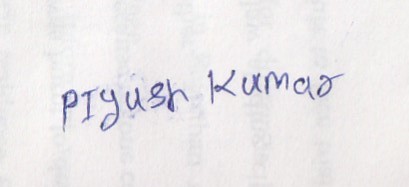 PIyush Kumar